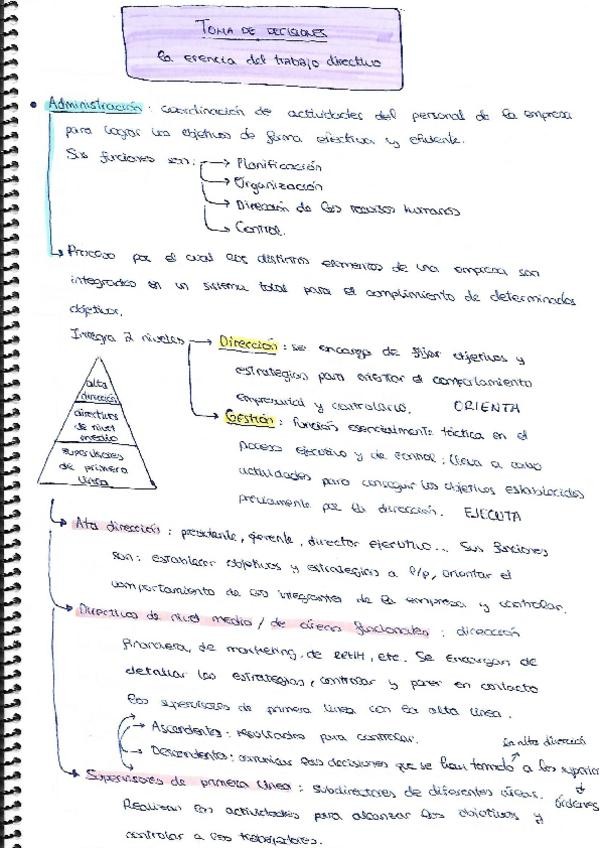 TOMA DE DECISIONES
La esencia del trabajo directivo
• Administración : coordinación de actividades del personal de la empresa
para lograr los objetivos de forma efectiva y eficiente.
Sus funciones son: → Planificación
→ Organización
→ Dirección de los recursos humanos
→ Control.
→ Proceso por el cual los distintos elementos de una empresa son
integrados en un sistema total para el cumplimiento de determinados
objetivos.
Integra 2 niveles → Dirección : se encarga de fijar objetivos y
estrategias para orientar el comportamiento
empresarial y controlarlo. ORIENTA
→ Gestión : función esencialmente táctica en el
proceso ejecutivo y de control ; lleva a cabo
actividades para conseguir los objetivos establecidos
previamente por la dirección. EJECUTA
alta
dirección
directivos
de nivel
medio
supervisores
de primera
línea
→ Alta dirección : presidente, gerente, director ejecutivo... Sus funciones
son : establecer objetivos y estrategias a l/p, orientar el
comportamiento de los integrantes de la empresa y controlar.
→ Directivos de nivel medio / de áreas funcionales : dirección
financiera, de marketing, de RRHH, etc. Se encargan de
detallar las estrategias, controlar y poner en contacto
los supervisores de primera línea con la alta línea.
→ Ascendentes : resultados para controlar.
la alta dirección
→ Descendentes : comunicar las decisiones que se han tomado a los superior
→ Supervisores de primera línea : subdirectores de diferentes áreas.
órdenes
Realizan las actividades para alcanzar los objetivos y
controlar a los trabajadores.